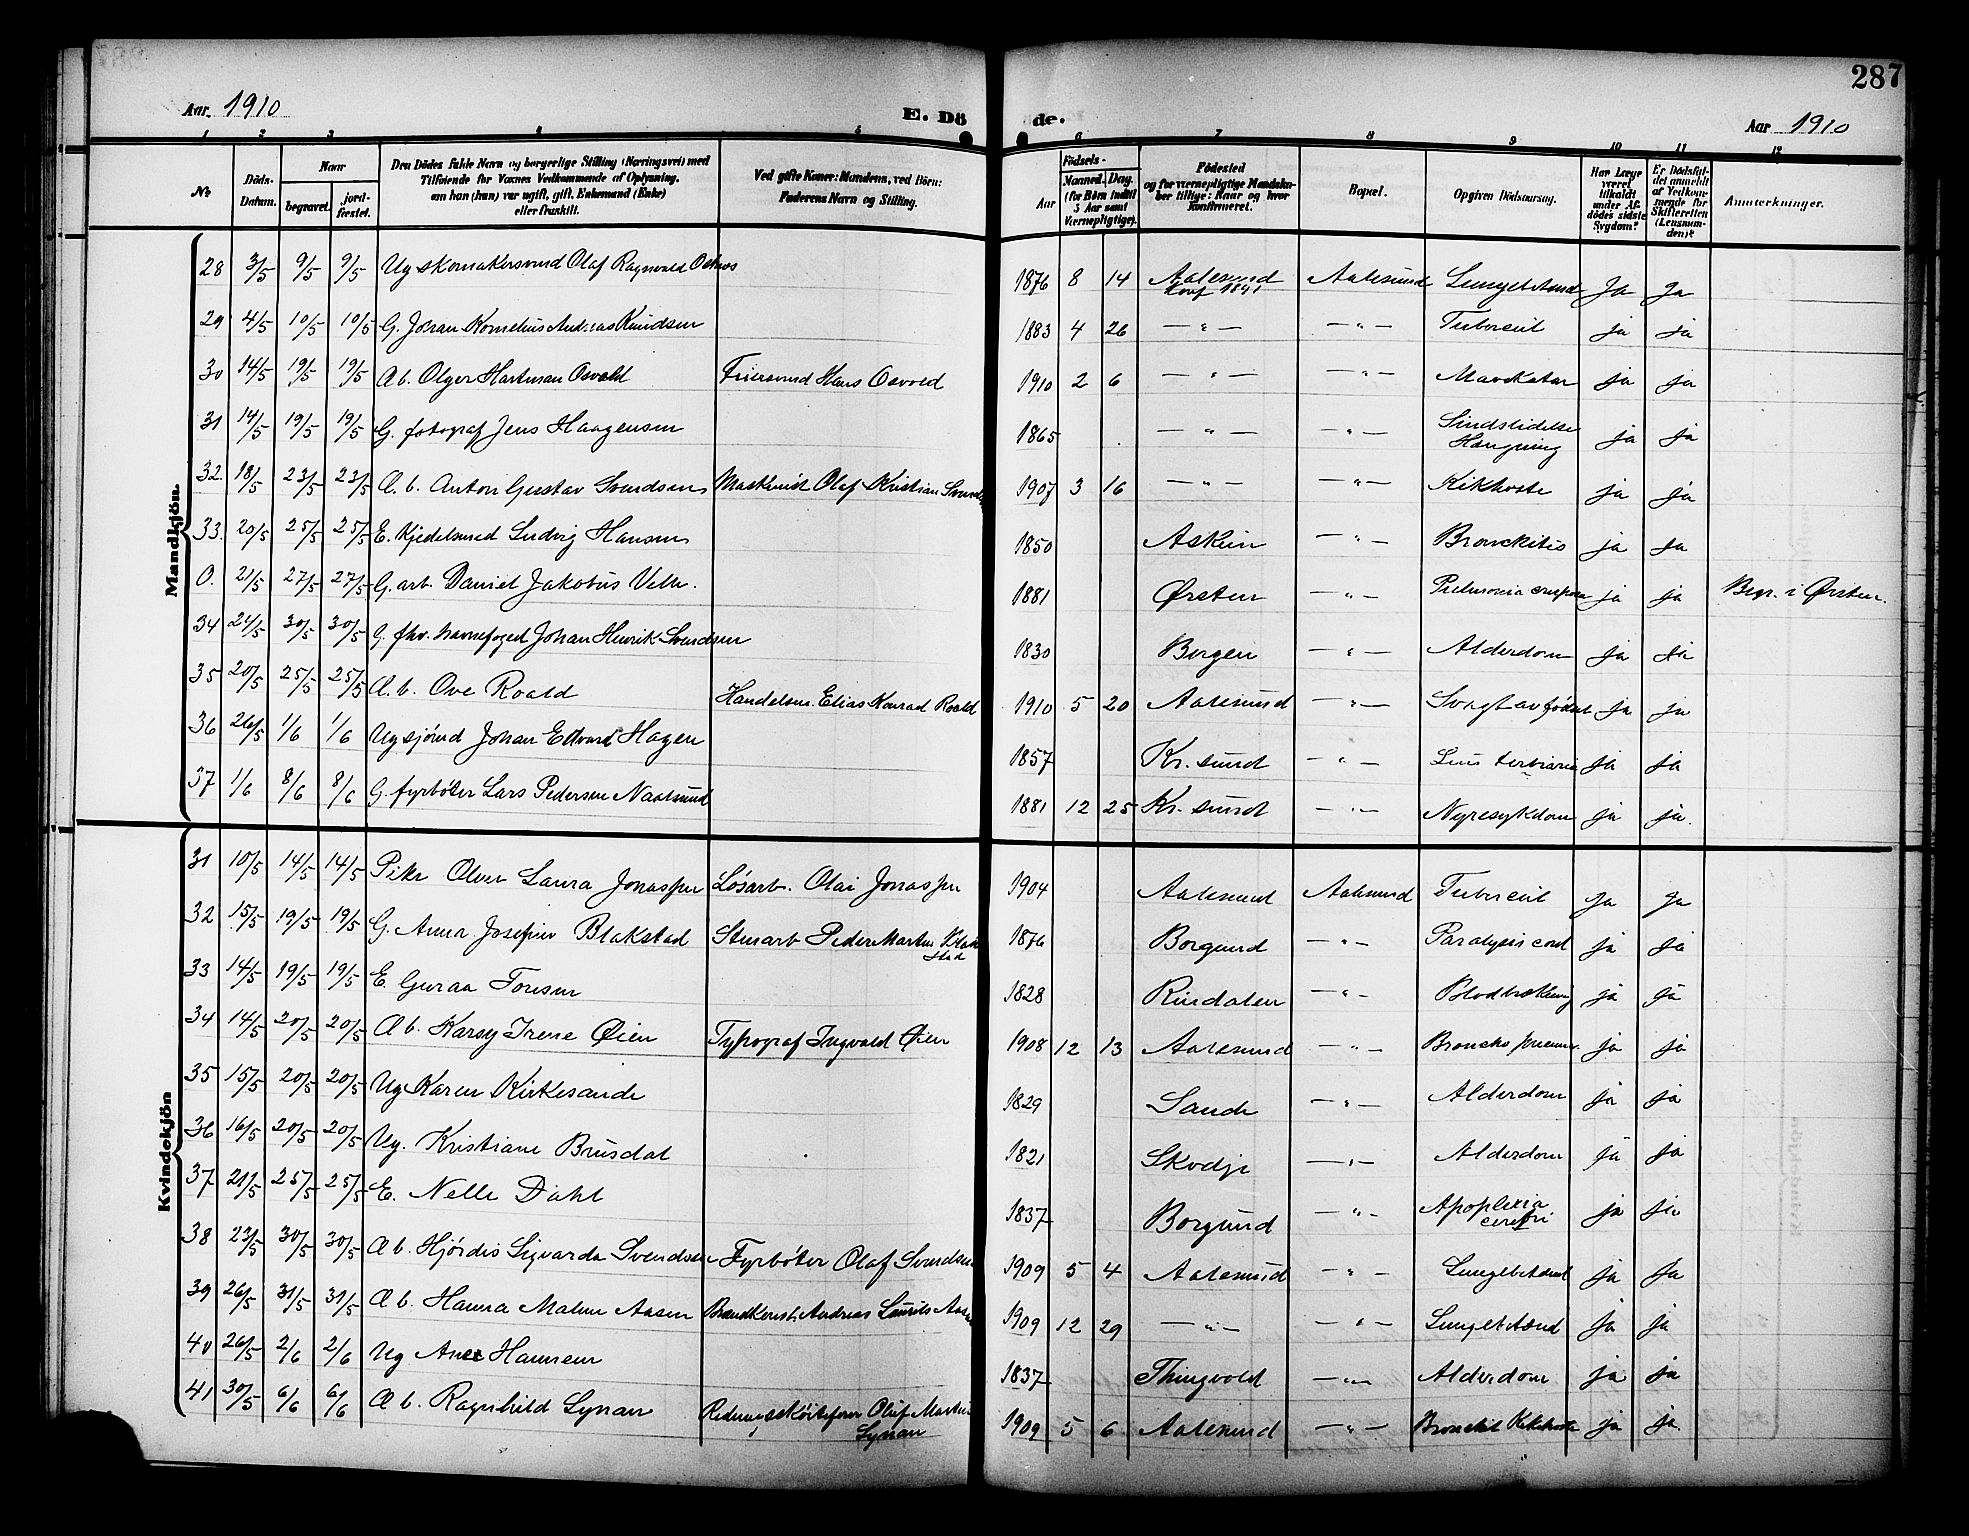 287
Aar 1910
E. Dö
de.
Aar 1910
1 2 3 4 5 6 7 8 9 10 11 12
No
Döds-Datum.
Naar
begravet.
jord-fæstet.
Den Dödes fulde Navn og borgerlige Stilling (Næringsvei) med
Tilföiende for Voxnes Vedkommende af Oplysning,
om han (hun) var ugift, gift, Enkemand (Enke)
eller fraskilt.
Ved gifte Koner: Mandens, ved Börn:
Faderens Navn og Stilling.
Födsels-
Aar
Maaned. Dag.
(for Börn indtil
5 Aar samt
Værnepligtige).
Födested
og for værnepligtige Mandska-
ber tillige: Naar og hvor
konfirmeret.
Bopæl.
Opgiven Dödsaarsag.
Har Læge
været
tilkaldt
under Af-
dödes sidste
Sygdom?
Er Dödsfal-
det anmeldt
af Vedkom-
mende for
Skifteretten
(Lensman-
den)?
Anmærkninger.
Mandkjön.
28 3/5 9/5 9/5 Ug skomakersvend Olaf Ragnvald 1876 8 14 Aalesund Aalesund Lungebetænd Ja Ja
29 4/5 10/5 10/5 G. Johan Kornelius Andreas Knudsen 1883 4 26 —"— —"— Tubereul ja ja
30 14/5 19/5 19/5 Æ b. Olger Hartman Osvold Feiersvend Hans Osvold 1910 2 6 —"— —"— Mavekatar ja ja
31 14/5 19/5 19/5 G. fotograf Jens Haagensen 1865 —"— —"— Sindslidelse Hængning ja ja
32. 18/5 23/5 23/5 Æ. b. Anton Gustav Svendsen Maskinist Olaf Kristian 1907 3 16 —"— —"— Kikhoste ja ja
33. 20/5 25/5 25/5 E. Kjedelsmed Ludvig Hansen 1850 Askim —"— Bronckitis ja ja
0. 21/5 27/5 27/5 G. arb. Daniel Jakobus 1881 Ørsten —"— ja ja Begr. i Ørsten.
34 24/5 30/5 30/5 G. fhv. havnefoged Johan Henrik Svendsen 1830 Bergen —"— Alderdom ja ja
35 20/5 25/5 25/5 Æ. b. Ove Roald Handelsm. Elias Konrad Roald 1910 5 20 Aalesund —"— Svagt av fødsel ja ja
36 26/5 1/6 1/6 Ug sjømd Johan Edvard Hagen 1857 Kr. sund —"— ja ja
37 1/6 8/6 8/6 G. fyrbøter Lars Pedersen 1881 12 25 Kr. sund —"— Nyresykdom ja ja.
Kvindekjön
31 10/5 14/5 14/5 Pike Laura Jonassen Løsarb. Olai Jonassen 1904 Aalesund Aalesund Tubercul Ja Ja
32 15/5 19/5 19/5 G. Anna Josefine Blakstad Stenarb Peder Martin Blakstad 1876 Borgund —"— Paralysis cord ja ja
33 14/5 19/5 19/5 E. Guraa Toresen 1828 Rindalen —"— ja ja
34 14/5 20/5 20/5 Æ b. Karsy Irene Øien Typograf Ingvald Øien 1908 12 13 Aalesund —"— ja ja
35 15/5 20/5 20/5 Ug Karen Kirkesande 1829 Sande —"— Alderdom ja ja
36 16/5 20/5 20/5 Ug. Kristiane Brusdal 1821 Skodje —"— Alderdom ja ja
37 21/5 25/5 25/5 E. Nelle Dahl 1837 Borgund —"— Apoplexia cerebri ja ja
38 23/5 30/5 30/5 Æ b. Hjørdis Sigvarda Svendsen Fyrbøter Olaf Svendsen 1909 5 4 Aalesund —"— Lungebetænd ja ja
39 26/5 31/5 31/5 Æ b. Hanna Malene Aasen Brandkonst. Andreas Laurits 1909 12 29 —"— —"— Lungebetænd ja ja
40 26/5 2/6 2/6 Ug Ane Hansen 1837 Thingvold —"— Alderdom ja ja
41 30/5 6/6 6/6 Æ b. Ragnhild Synan Redningsskøitefører Oluf Martin Synan 1909 5 6 Aalesund —"— Bronckit Kikhoste ja ja.